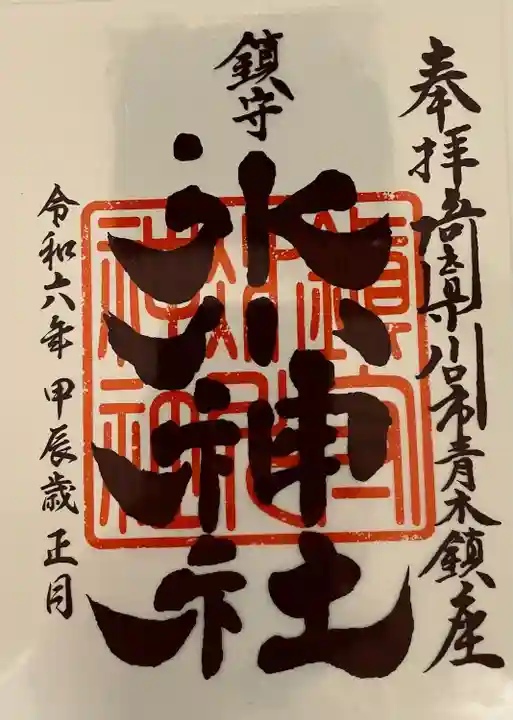 奉拝 埼玉県川口市青木鎮座
鎮守
氷川神社
令和六年 甲辰歳 正月
鎮守
氷川
神社